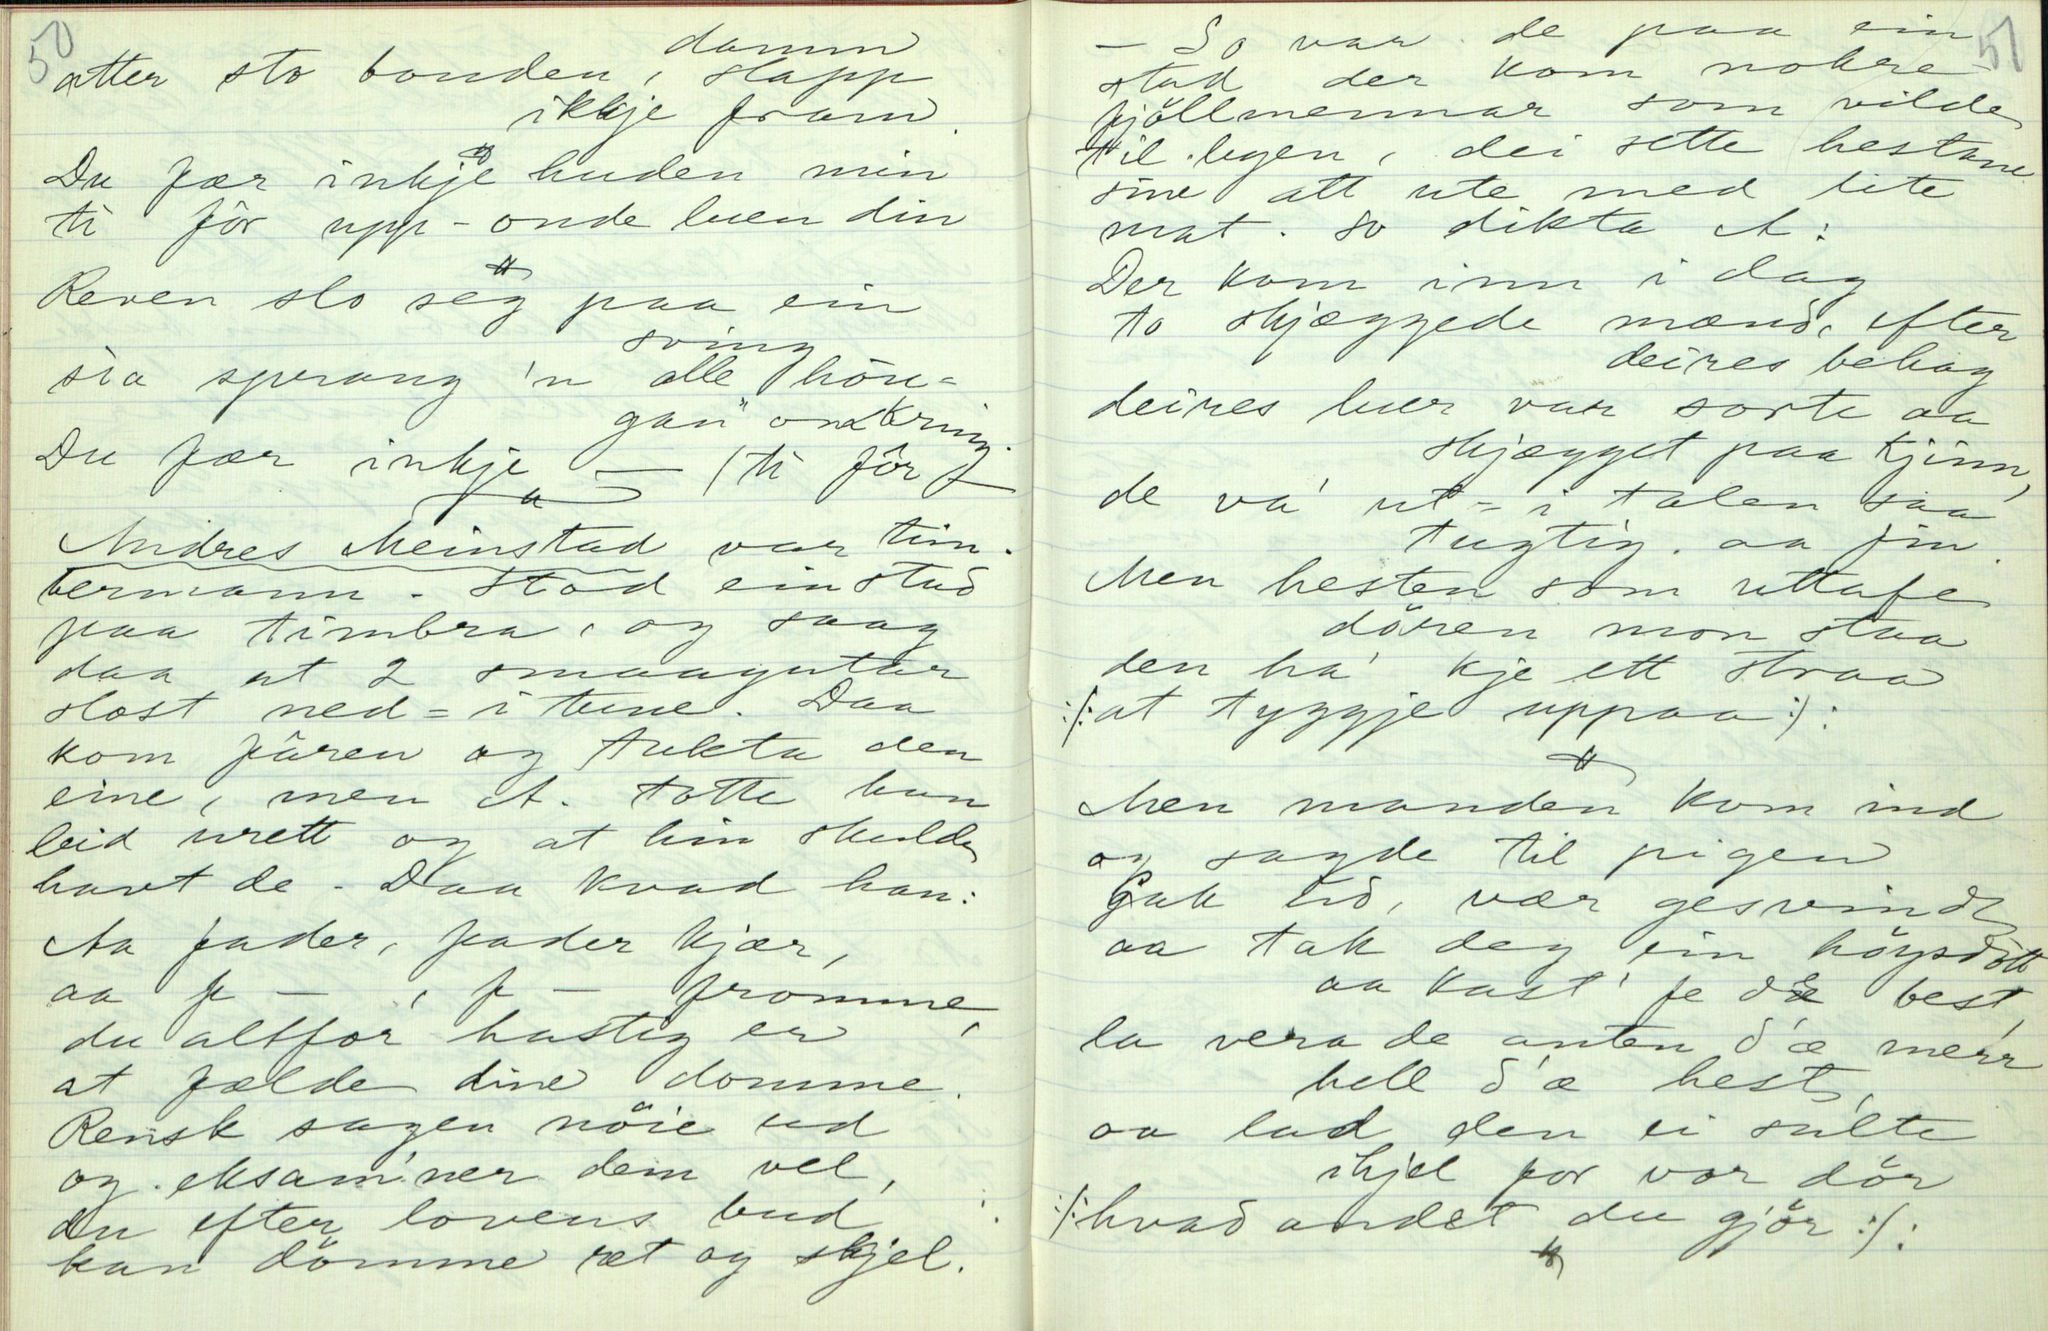 50
atter sto bonden, slapp
damm
ikkje fram.
Du fær inkje huden min
ti för upp-onde luen din
Reven slo seg paa ein
sving
sia sprang 'n alle hön-
gan" omkring.
Du fær inkje — (ti för)
Andres Meinstad var tim-
bermann - stod ein stad
paa timbra, og saag
daa at 2 smaagutar
slost ned=i tune. Daa
kom fåren og tukta den
eine, men A. totte han
leid urett og at hin skulde
havt de - Daa kvad han:
Aa fader, fader kjær,
aa f — , f — fromme,
du altfor hastig er
at fælde dine domme.
Rensk sagen nöie ud
og eksaminer dem vel,
du efter lovens bud
kan dömme ret og skjel.
51
- So var de paa ein
stad der kom nokre
fjöllmennar som vilde
til byen, dei sette hestane
sine att ute med lite
mat. So dikta A:
Der kom inn i dag
to skjæggede mænd, efter
deires behag
deires luer var sorte aa
skjægget paa kjinn,
de va' ut=i talen saa
tugtig aa fin.
Men hesten som uttafe
dören mon staa
den ha' kje ett straa
:/: at tyggje uppaa :/:
Men manden kom ind
og sagde til pigen
Gak ud, vær gesvindt
aa tak deg ein höysdott
aa kast' fe de best,
la vera de anten d'æ merr
hell d'æ hest,
aa lad den ei sulte
ihjel for vor dör
:/: hvad andet du gjör :/: